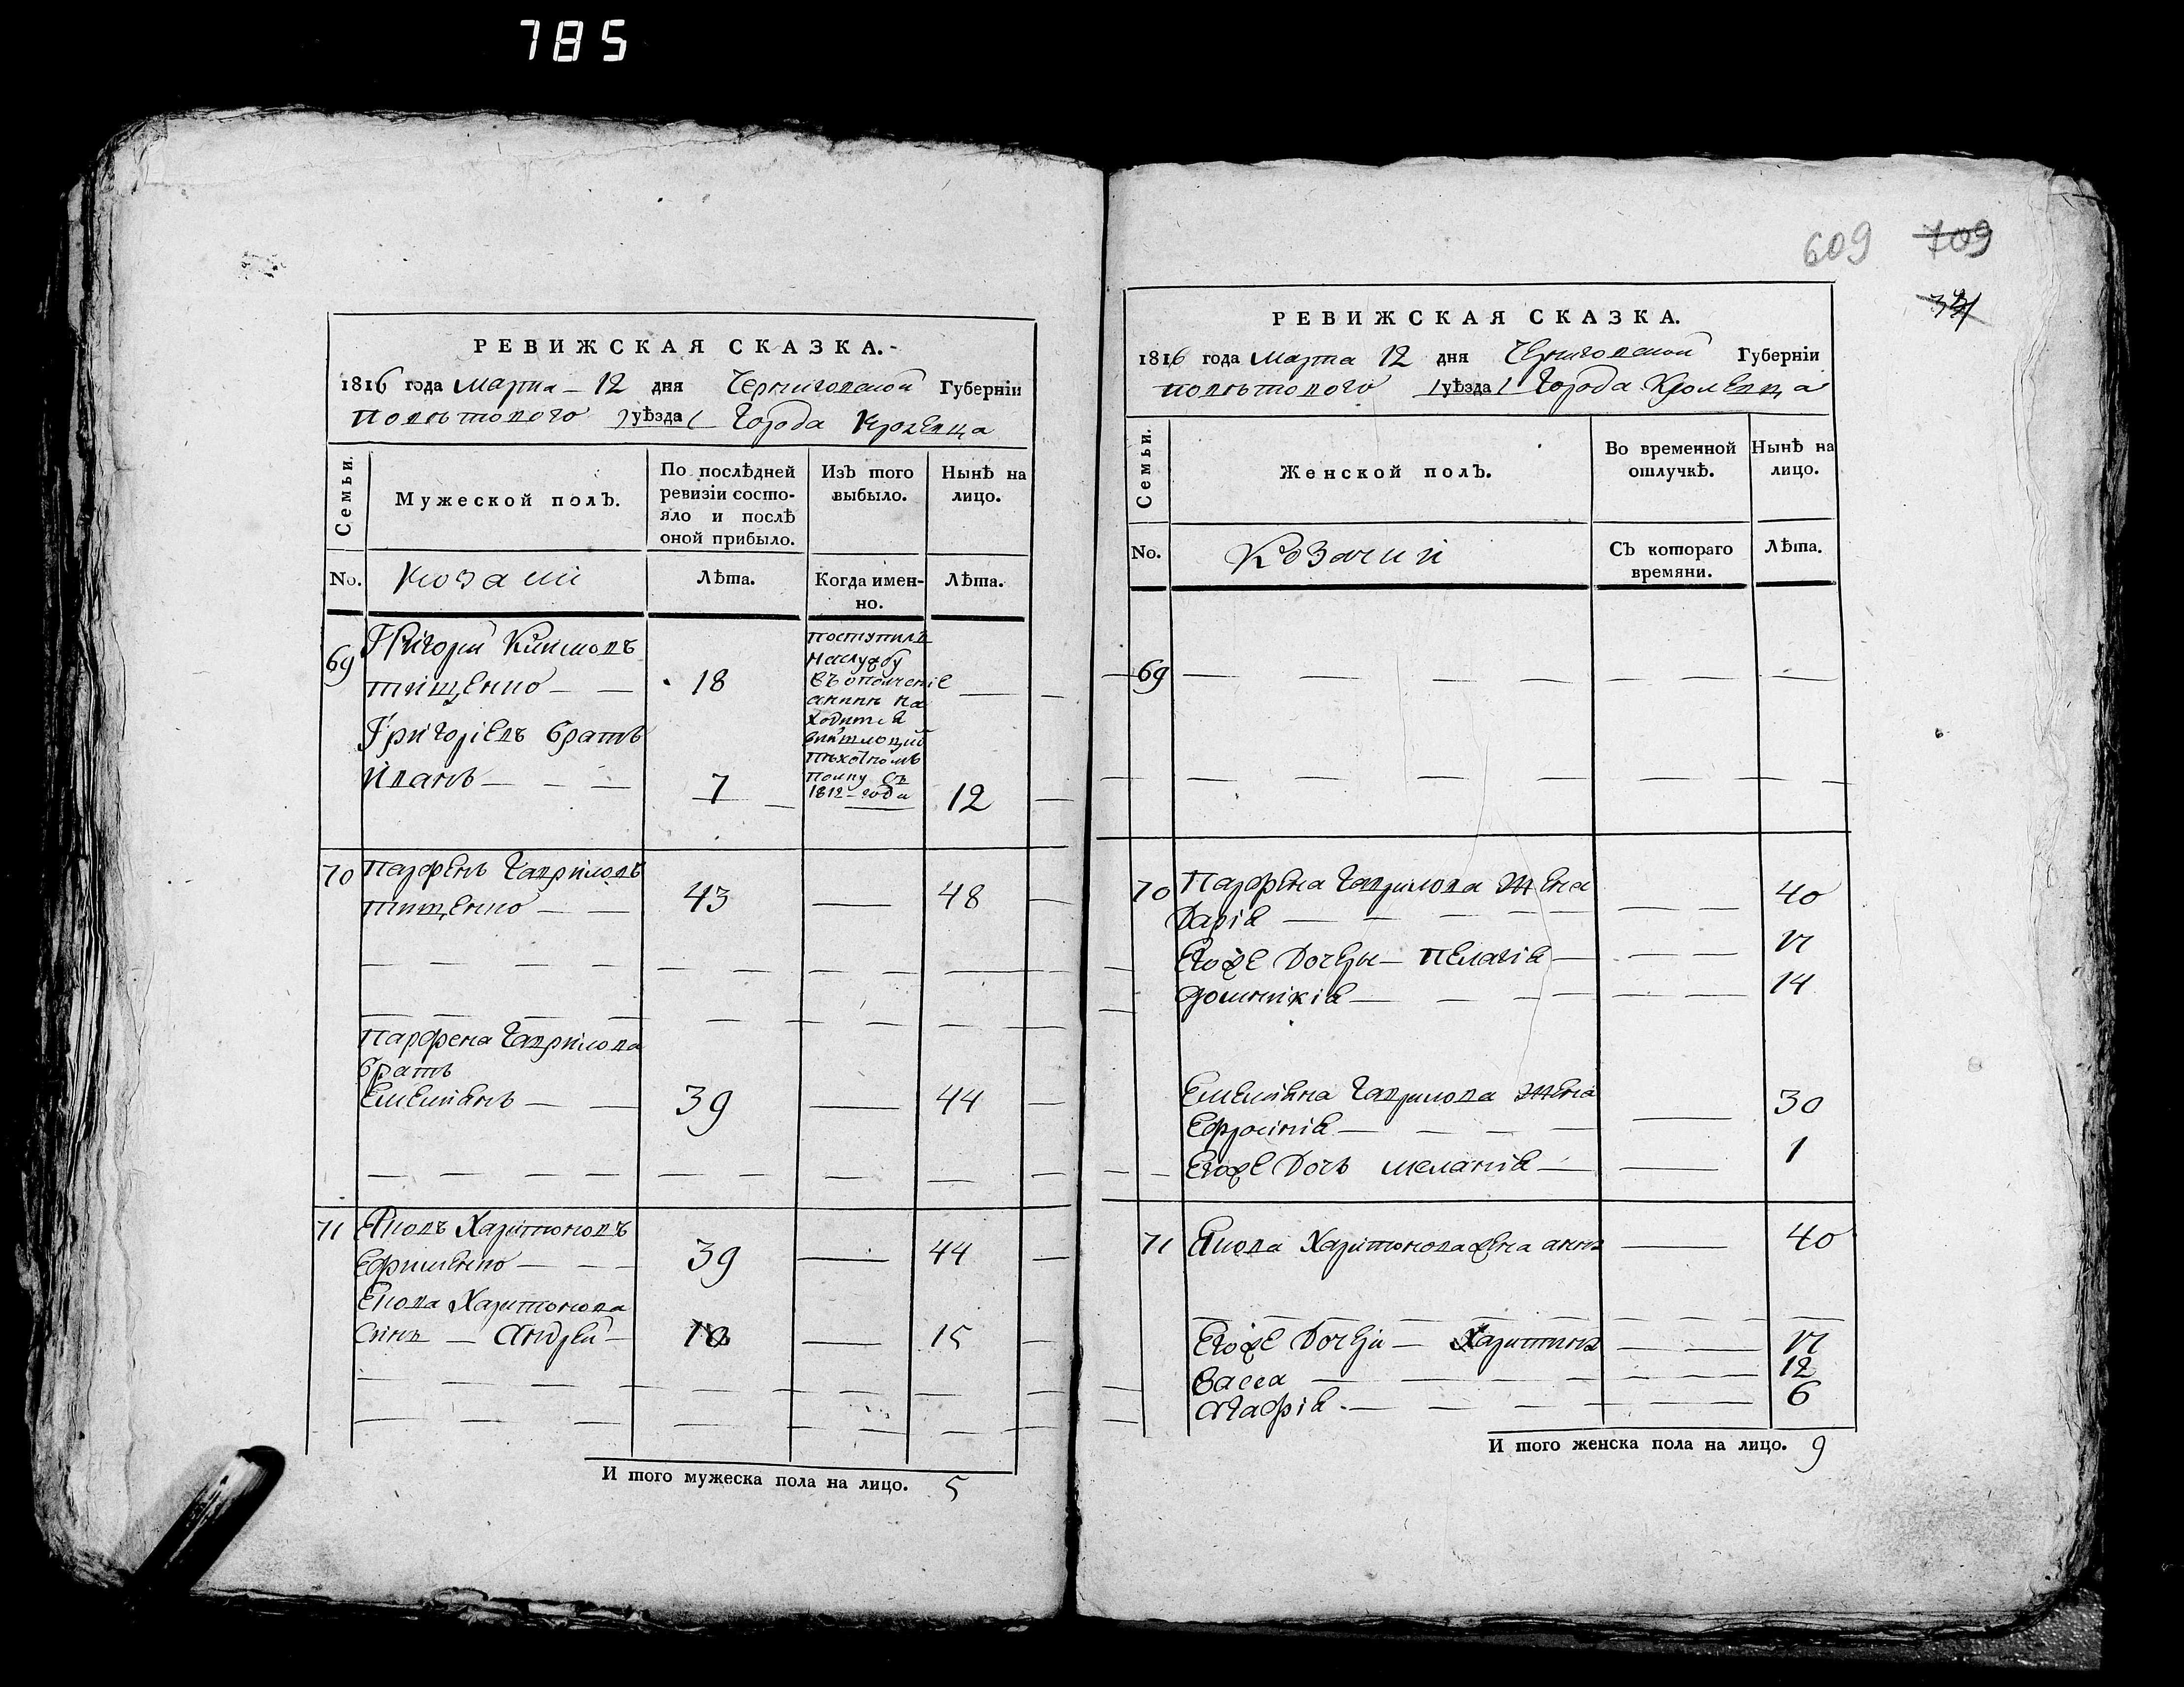 785
РЕВИЖСКАЯ СКАЗКА.
1816 года Марта 12 дня Черниговской Губерніи
Поветового уѣзда Города Кролевца
Семьи.
Мужеской полъ.
По послѣдней ревизіи состояло и послѣ оной прибыло.
Изъ того выбыло.
Нынѣ на лицо.
No.
Козаки
Лѣта.
Когда именно.
Лѣта.
69 Григорій Климовъ
Тищенко 18
поступилъ
наслужбу
въ ополченіе
анынѣ на
ходится
пѣхотномъ
полку съ
1812 года
Григоріевъ братъ
Иванъ 7 12
70 Парфенъ Гавриловъ
Тищенко 43 48
Парфена Гаврилова
братъ
Емельянъ 39 44
71 Яковъ Харитоновъ
Ефименко 39 44
Якова Харитонова
синъ Андрей 10 15
И того мужеска пола на лицо. 5
609 709
РЕВИЖСКАЯ СКАЗКА.
1816 года Марта 12 дня Черниговской Губерніи
Поветового уѣзда Города Кролевца
Семьи.
Женской полъ.
Во временной отлучкѣ.
Нынѣ на лицо.
No.
Козачки
Съ котораго времяни.
Лѣта.
69
70 Парфена Гаврилова жена
Дарія 40
Егоже дочери Пелагія 17
Домникія 14
Емельяна Гаврилова жена
Ефросинія 30
Егоже дочь Меланія 1
71 Якова Харитонова жена анна 40
Егоже дочери Харитина 17
Васса 12
Агафія 6
И того женска пола на лицо. 9